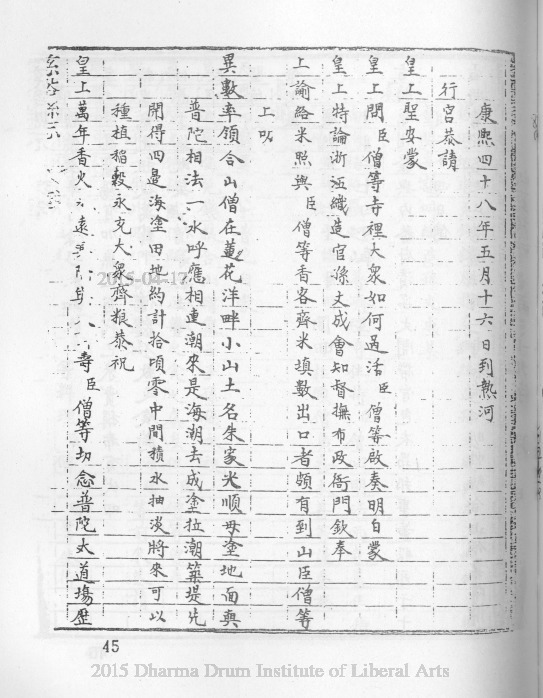 康熙四十八年五月十六日到熱河
行宮恭請
皇上聖安蒙
皇上問臣僧等寺裡大衆如何過活臣僧等啟奏明白蒙
皇上特諭浙江織造官孫文成會知督撫布政衙門欽奉
上諭給米照與臣僧等香客齊米填數出口者頗有到山臣僧等
上以
異數率領合山僧在蓮花洋畔小山土名朱家光順母塗地面與
普陀相法一水呼應相連潮來是海潮去成塗拉潮築堤先
開得四是海塗田地約計拾頃零中間積水抽淡將來可以
種植稻穀永充大衆齊粮恭祝
皇上萬年香火 遠 壽臣僧等切念普陀大道場歷
45
2015-04-17
2015 Dharma Drum Institute of Liberal Arts